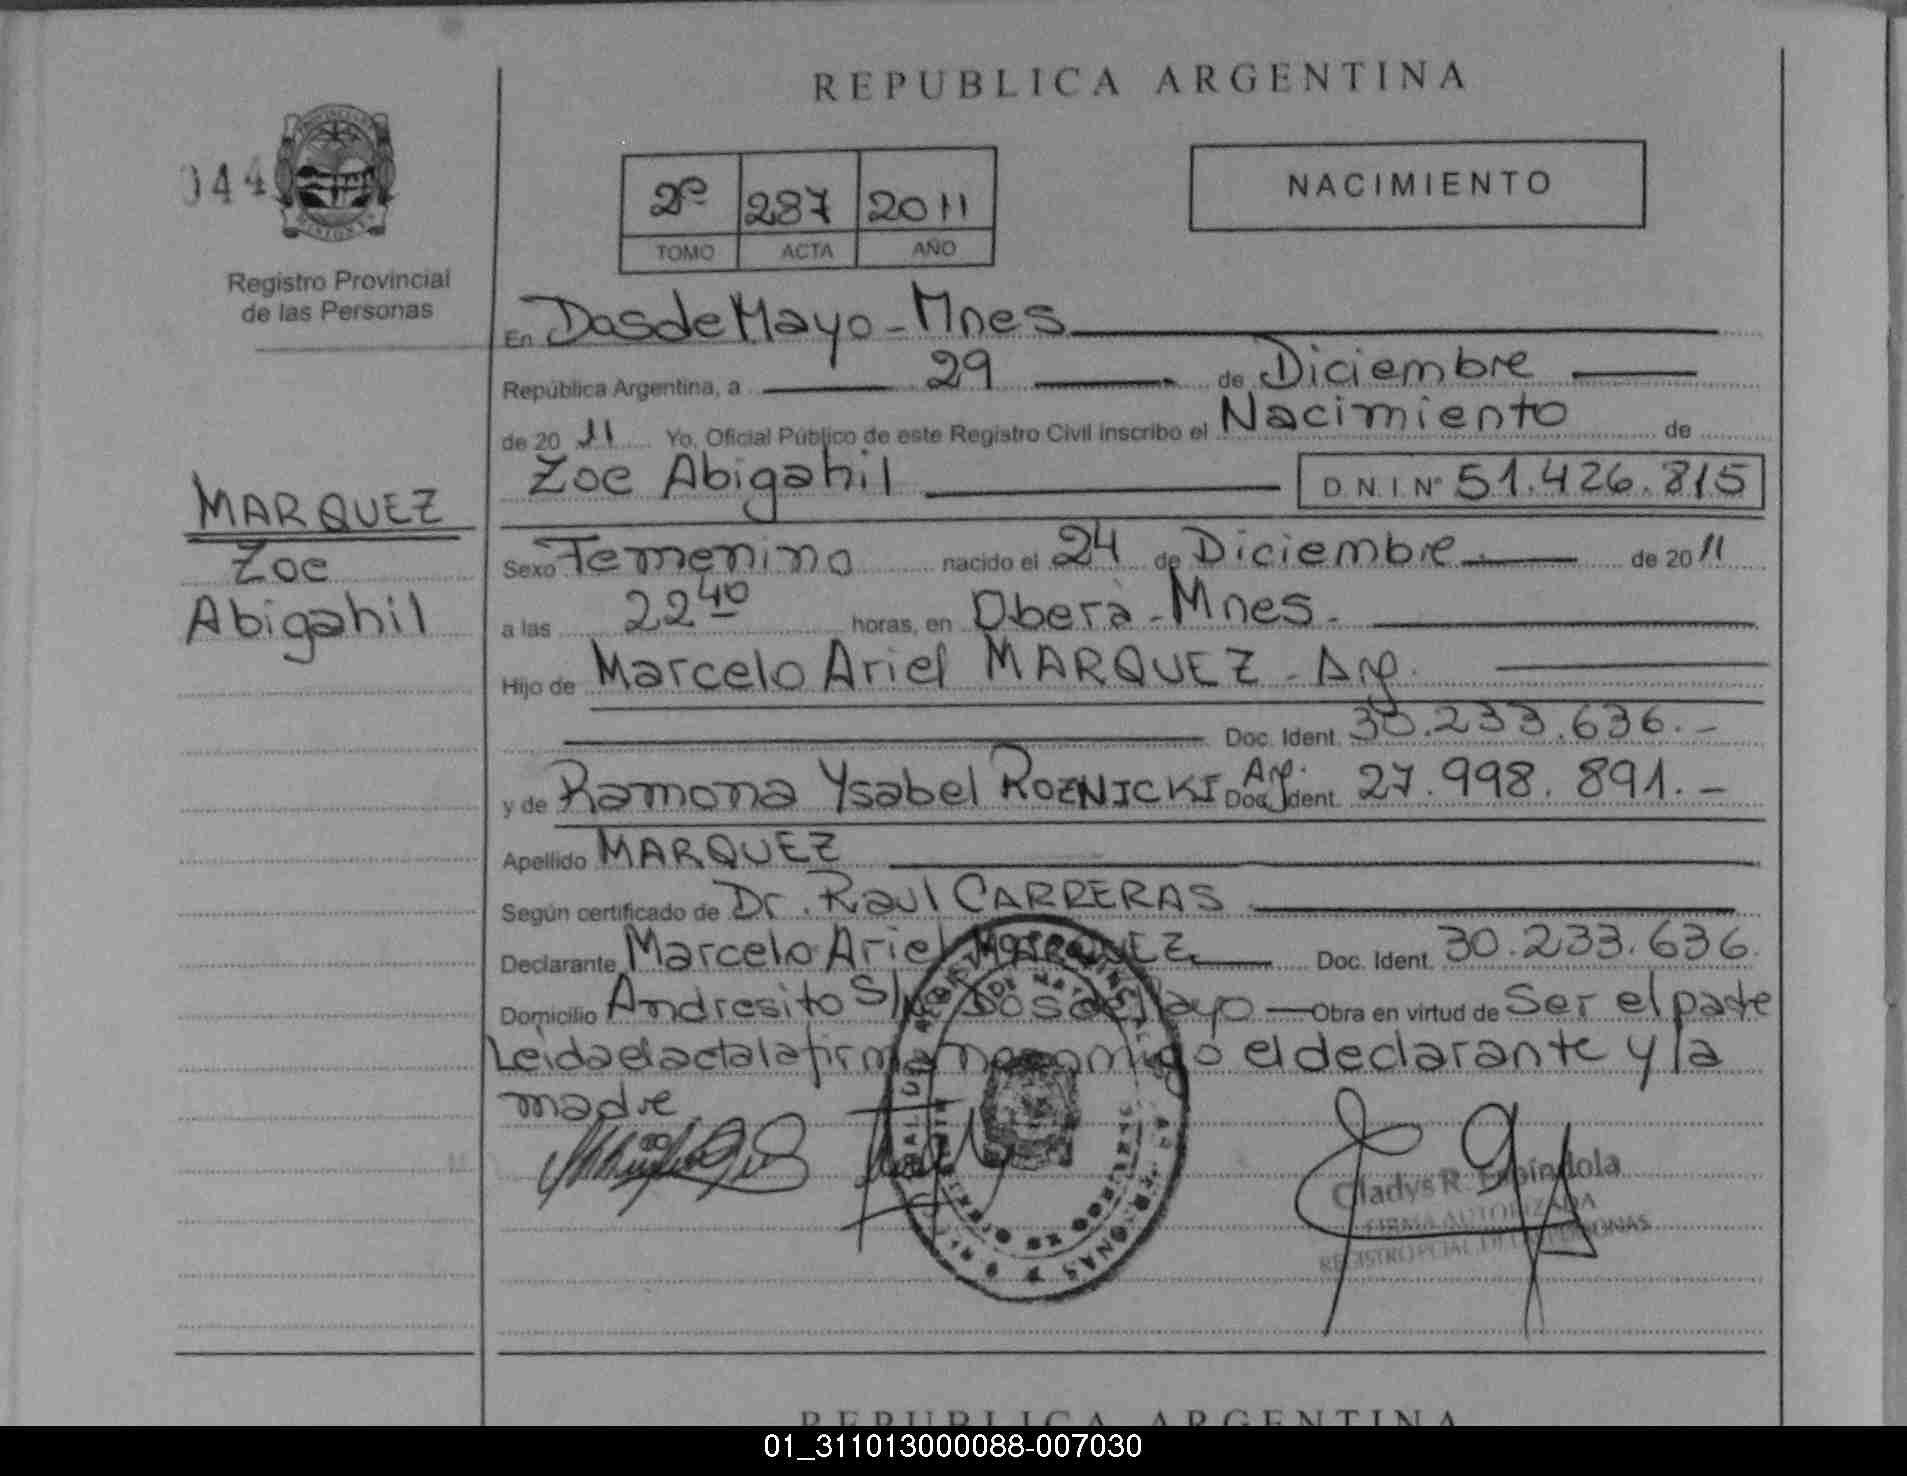 REPUBLICA ARGENTINA
044
Registro Provincial
de las Personas
2º 287 2011
TOMO ACTA AÑO
NACIMIENTO
En Dos de Mayo - Mnes
República Argentina, a 29 de Diciembre
de 20 11 Yo, Oficial Público de este Registro Civil inscribo el Nacimiento de
Zoe Abigahil D.N.I. Nº 51.426.815
MARQUEZ
Zoe
Abigahil
Sexo Femenino nacido el 24 de Diciembre de 20 11
a las 22 40 horas, en Oberà - Mnes.
Hijo de Marcelo Ariel MARQUEZ - Arg.
Doc. Ident. 30.233.636.-
y de Ramona Ysabel ROZNICKI Arg. Doc. Ident. 27.998.891.-
Apellido MARQUEZ
Según certificado de Dr. Raul CARRERAS
Declarante Marcelo Ariel MARQUEZ Doc. Ident. 30.233.636.
Domicilio Andresito S/N Dos de Mayo Obra en virtud de Ser el padre
Leida el acta la firman conmigo el declarante y la
madre
Gladys R. Espíndola
FIRMA AUTORIZADA
REGISTRO PCIAL DE LAS PERSONAS
REPUBLICA ARGENTINA
01_311013000088-007030